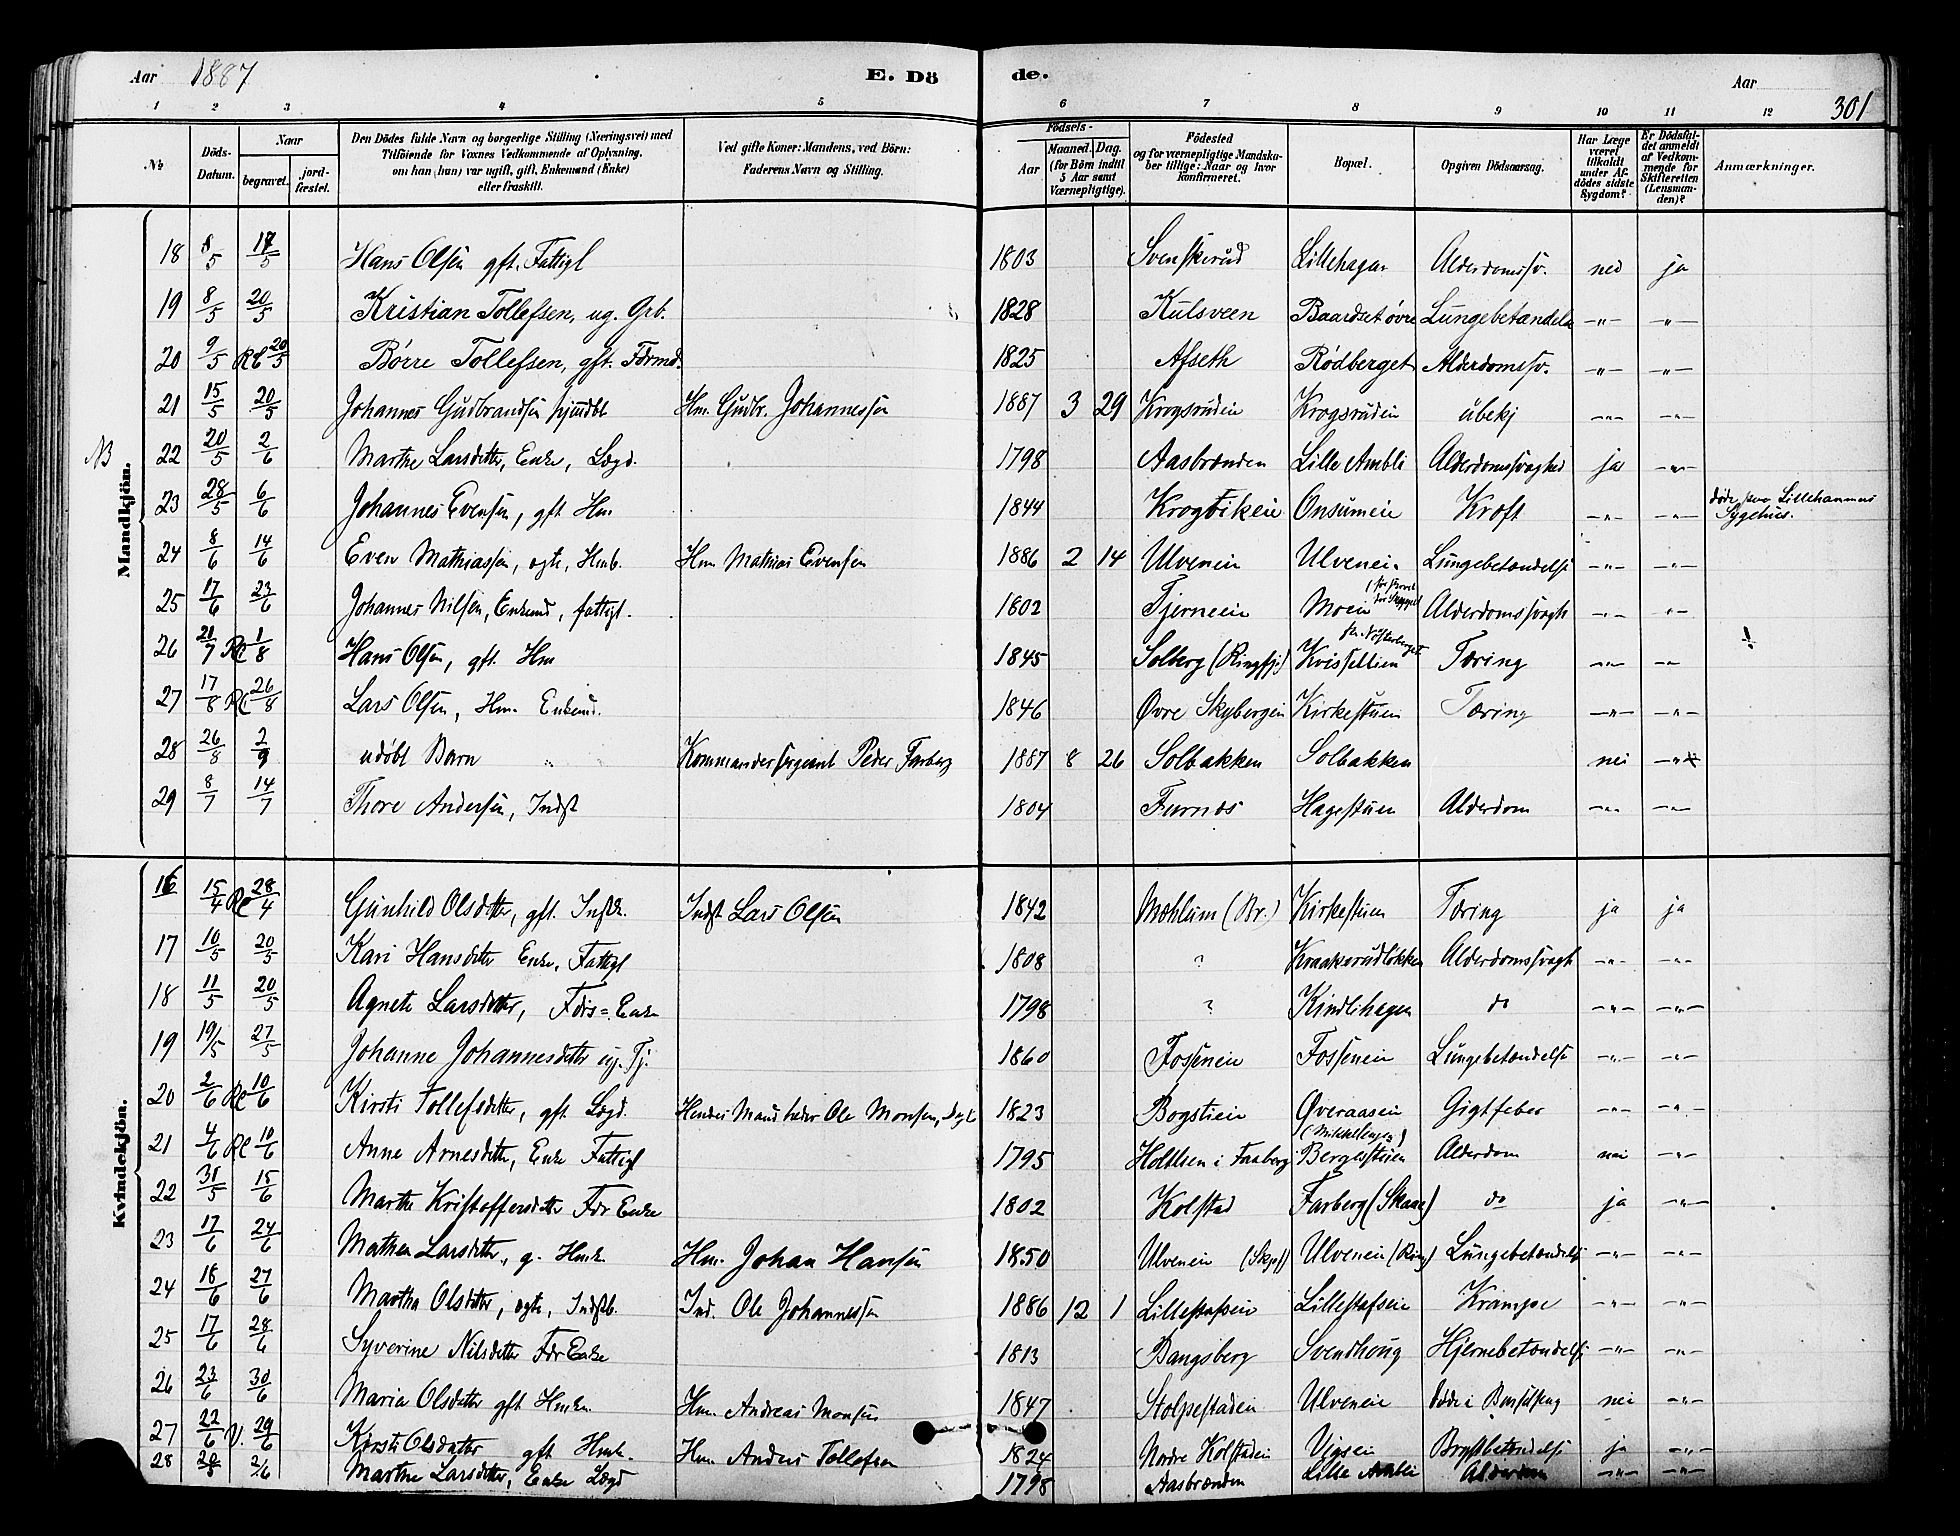 Aar 1887 E. Dö de. Aar 301
1 2 3 4 5 6 7 8 9 10 11 12
No
Döds-Datum.
Naar
begravet.
jord-fæstet.
Den Dödes fulde Navn og borgerlige Stilling (Næringsvei) med
Tilföiende for Voxnes Vedkommende af Oplysning,
om han (hun) var ugift, gift, Enkemand (Enke)
eller fraskilt.
Ved gifte Koner: Mandens, ved Börn:
Faderens Navn og Stilling.
Födsels-
Aar
Maaned. Dag.
(for Börn indtil
5 Aar samt
Værnepligtige).
Födested
og for værnepligtige Mandska-
ber tillige: Naar og hvor
konfirmeret.
Bopæl.
Opgiven Dödsaarsag.
Har Læge
været
tilkaldt
under Af-
dödes sidste
Sygdom?
Er Dödsfal-
det anmeldt
af Vedkom-
mende for
Skifteretten
(Lensman-
den)?
Anmærkninger.
Mandkjön.
18 8/5 17/5 Hans Olsen gft. Fattigl 1803 Svenskerud Lillehagen Alderdomssv. nei ja
19 8/5 20/5 Kristian Tollefsen, ug. Grb. 1828 Kulsveen Baardset øvre Lungebetændelse -"- -"-
20 9/5 Rl 20/5 Børre Tollefsen, gft. Formd. 1825 Afseth Rødberget Alderdomssv. -"- -"-
21 15/5 20/5 Johannes Gudbrandsen hjmdbt Hm. Gudbr. Johannessen 1887 3 29 Krogsrudeie Krogsrudeie ubekj -"- -"-
NB 22 20/5 2/6 Marthe Larsdatter, Enke, Lægd. 1798 Aasbrænden Lille Ambli Alderdomssvaghed ja -"-
23 28/5 6/6 Johannes Evensen, gft Hm 1844 Krogbikeie Onsumeie Kræft -"- -"- døde paa Lillehammers Sygehus.
24 8/6 14/6 Even Mathiassen, ægte, Hmb. Hm Mathias Evensen 1886 2 14 Ulveneie Ulveneie Lungebetændelse -"- -"-
25 17/6 23/6 Johannes Nilsen, Enkemd, fattigl. 1802 Tjerneeie Moeie Alderdomssvagh -"- -"-
26 21/7 Rl 1/8 Hans Olsen, gft. Hm 1845 Solberg (Ringsj.) Krisseliien Tæring -"- -"- !
27 17/8 Rl 26/8 Lars Olsen, Hm. Enkemd. 1846 Øvre Skybergeie Kirkestuen Tæring -"- -"-
28 26/8 2/9 udøbt Barn " Kommandersergeant Peder Faaberg 1887 8 26 Solbakken Solbakken nei -"-
29 8/7 14/7 Thore Andersen, Indst 1804 Furnæs Hagestuen Alderdom -"- -"-
Kvindekjön.
16 15/4 Rl 28/4 Gunhild Olsdatter, gft. Instk. Indst Lars Olsen 1842 Mæhlum (Br.) Kirkestuen Tæring ja ja
17 10/5 20/5 Kari Hansdatter Enke, Fattigl 1808 ? Kraakerudløkken Alderdomssvagh -"- -"-
18 11/5 20/5 Agnete Larsdatter, Fdrs=Enke 1798 ? Kindlihagen do -"- -"-
19 19/5 27/5 Johanne Johannesdatter ug. Tj. 1860 Fosseneie Fosseneie Lungebetændelse -"- -"-
20 2/6 Rl 10/6 Kirsti Tollefsdatter, gft. Lægd. Hendes Mand heder Ole Monsen, Lægd 1823 Bogstieie Øveraaseie Gigtfeber -"- -"-
21 4/6 Rl 10/6 Anne Arnesdatter, Enke Fattigl 1795 Holtlsen i Faaberg Bergesstuen Alderdom nei -"-
22 31/5 15/6 Marthe Kristoffersdatter Fdr Enke 1802 Kolstad Faaberg (Skaar) do ja -"-
23 17/6 24/6 Mathea Larsdatter, g. Hmk. Hm. Johan Hansen 1850 Ulveneie Ulveneie (Ring) Lungebetændelse -"- -"-
24 18/6 27/6 Martha Olsdatter, ægte, Indstb. Ind. Ole Johannessen 1886 12 1 Lillestafseie Lillestafseie Krampe -"- -"-
25 17/6 28/6 Syverine Nilsdatter Fdr Enke 1813 Bangsberg Svendhoug Hjernebetændelse -"- -"-
26 23/6 30/6 Maria Olsdatter gft Hmkn Hm. Andreas Monsen 1847 Stolpestadeie Ulveneie Døde i Barselseng nei -"-
27 22/6 V. 29/6 Kirsti Olsdatter gft Hmk. Hm. Anders Tollefsen 1824 Nordre Kolstadeie Vigseie Brystbetændelse ja -"-
28 20/5 2/6 Marthe Larsdatter, Enke Lægd 1798 Aasbrænden Lille Ambli Alderdom -"- -"-